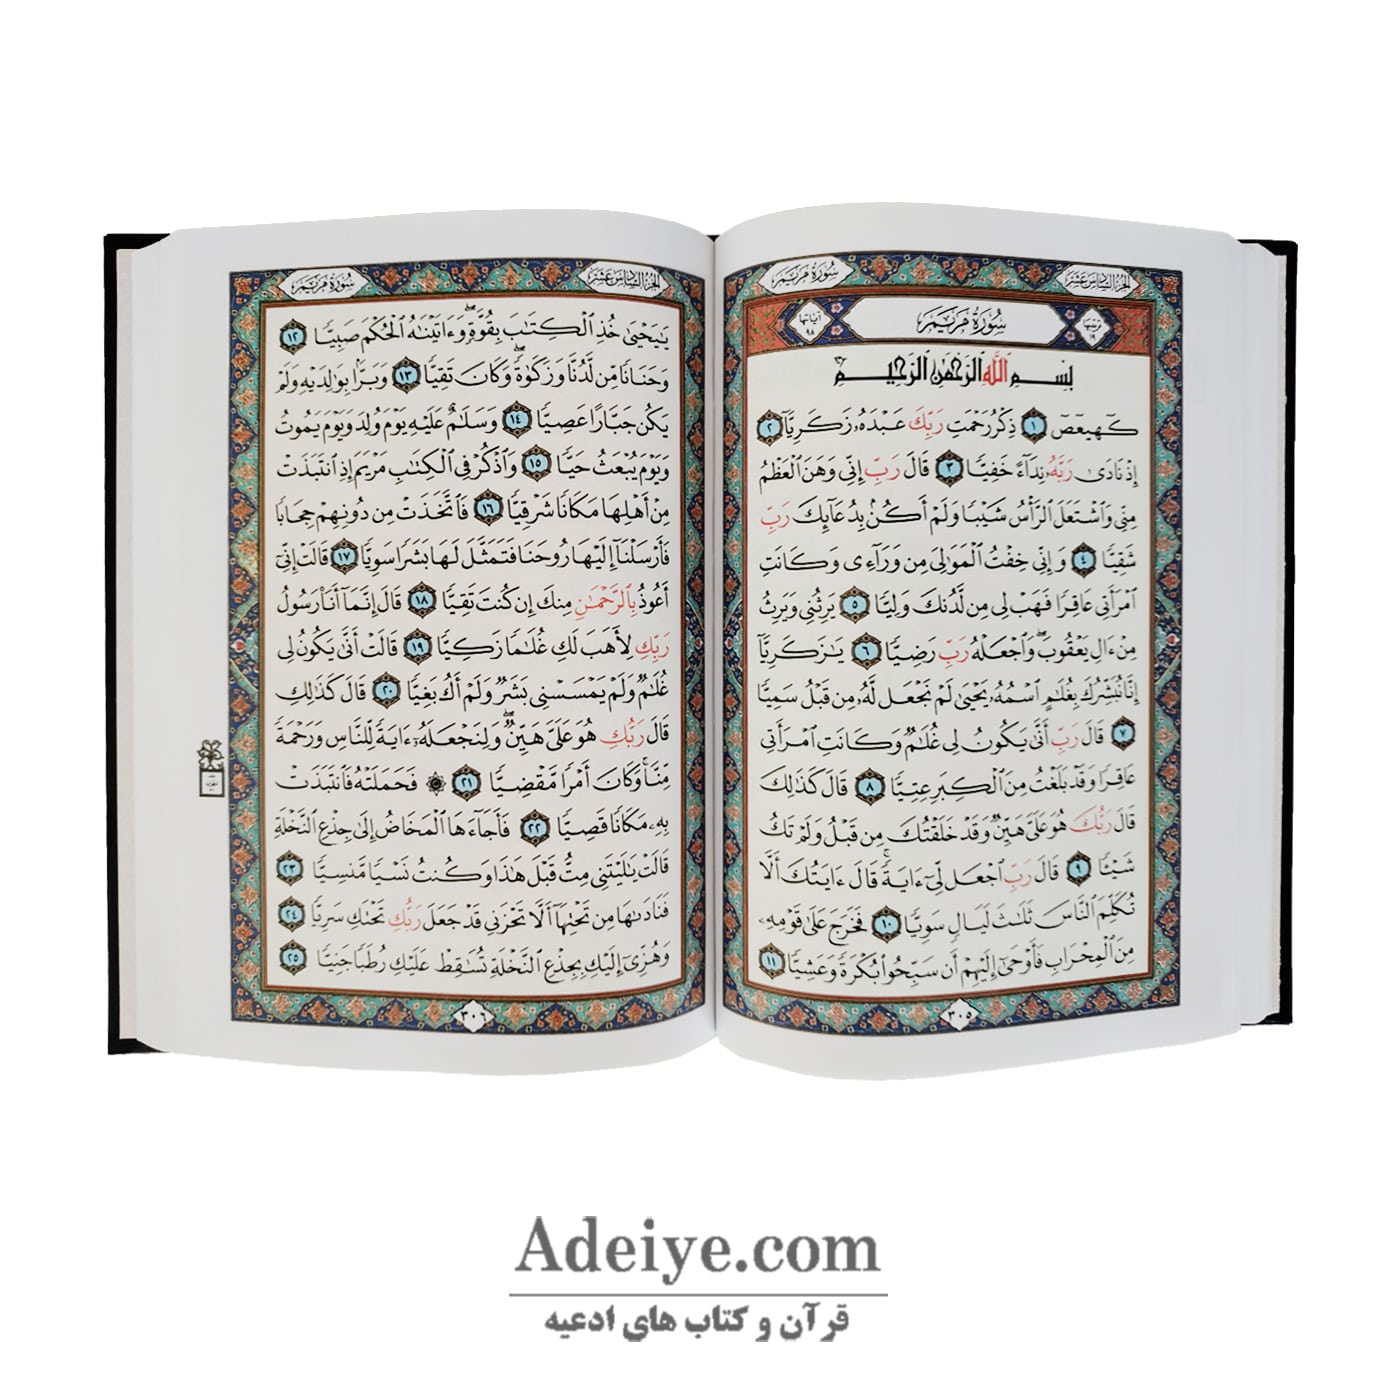 الجزء السادس عشر
سورة مريم
ترتيبها ١٩
سورة مريم
آياتها ٩٨
بِسْمِ ٱللَّهِ ٱلرَّحْمَٰنِ ٱلرَّحِيمِ
كٓهيعٓصٓ ١ ذِكْرُ رَحْمَتِ رَبِّكَ عَبْدَهُۥ زَكَرِيَّآ ٢
إِذْ نَادَىٰ رَبَّهُۥ نِدَآءً خَفِيًّا ٣ قَالَ رَبِّ إِنِّي وَهَنَ ٱلْعَظْمُ
مِنِّي وَٱشْتَعَلَ ٱلرَّأْسُ شَيْبًا وَلَمْ أَكُنۢ بِدُعَآئِكَ رَبِّ
شَقِيًّا ٤ وَإِنِّي خِفْتُ ٱلْمَوَٰلِيَ مِن وَرَآءِي وَكَانَتِ
ٱمْرَأَتِي عَاقِرًا فَهَبْ لِي مِن لَّدُنكَ وَلِيًّا ٥ يَرِثُنِي وَيَرِثُ
مِنْ ءَالِ يَعْقُوبَ ۖ وَٱجْعَلْهُ رَبِّ رَضِيًّا ٦ يَٰزَكَرِيَّآ
إِنَّا نُبَشِّرُكَ بِغُلَٰمٍ ٱسْمُهُۥ يَحْيَىٰ لَمْ نَجْعَل لَّهُۥ مِن قَبْلُ سَمِيًّا
٧ قَالَ رَبِّ أَنَّىٰ يَكُونُ لِي غُلَٰمٌ وَكَانَتِ ٱمْرَأَتِي
عَاقِرًا وَقَدْ بَلَغْتُ مِنَ ٱلْكِبَرِ عِتِيًّا ٨ قَالَ كَذَٰلِكَ
قَالَ رَبُّكَ هُوَ عَلَيَّ هَيِّنٌ وَقَدْ خَلَقْتُكَ مِن قَبْلُ وَلَمْ تَكُ
شَيْـًٔا ٩ قَالَ رَبِّ ٱجْعَل لِّيٓ ءَايَةً ۚ قَالَ ءَايَتُكَ أَلَّا
تُكَلِّمَ ٱلنَّاسَ ثَلَٰثَ لَيَالٍ سَوِيًّا ١٠ فَخَرَجَ عَلَىٰ قَوْمِهِۦ
مِنَ ٱلْمِحْرَابِ فَأَوْحَىٰٓ إِلَيْهِمْ أَن سَبِّحُوا۟ بُكْرَةً وَعَشِيًّا ١١
٣٠٥
الجزء السادس عشر
سورة مريم
يَٰيَحْيَىٰ خُذِ ٱلْكِتَٰبَ بِقُوَّةٍ ۖ وَءَاتَيْنَٰهُ ٱلْحُكْمَ صَبِيًّا ١٢
وَحَنَانًا مِّن لَّدُنَّا وَزَكَوٰةً ۖ وَكَانَ تَقِيًّا ١٣ وَبَرًّۢا بِوَٰلِدَيْهِ وَلَمْ
يَكُن جَبَّارًا عَصِيًّا ١٤ وَسَلَٰمٌ عَلَيْهِ يَوْمَ وُلِدَ وَيَوْمَ يَمُوتُ
وَيَوْمَ يُبْعَثُ حَيًّا ١٥ وَٱذْكُرْ فِي ٱلْكِتَٰبِ مَرْيَمَ إِذِ ٱنتَبَذَتْ
مِنْ أَهْلِهَا مَكَانًا شَرْقِيًّا ١٦ فَٱتَّخَذَتْ مِن دُونِهِمْ حِجَابًا
فَأَرْسَلْنَآ إِلَيْهَا رُوحَنَا فَتَمَثَّلَ لَهَا بَشَرًا سَوِيًّا ١٧ قَالَتْ إِنِّيٓ
أَعُوذُ بِٱلرَّحْمَٰنِ مِنكَ إِن كُنتَ تَقِيًّا ١٨ قَالَ إِنَّمَآ أَنَا۠ رَسُولُ
رَبِّكِ لِأَهَبَ لَكِ غُلَٰمًا زَكِيًّا ١٩ قَالَتْ أَنَّىٰ يَكُونُ لِي
غُلَٰمٌ وَلَمْ يَمْسَسْنِي بَشَرٌ وَلَمْ أَكُ بَغِيًّا ٢٠ قَالَ كَذَٰلِكِ
قَالَ رَبُّكِ هُوَ عَلَيَّ هَيِّنٌ ۖ وَلِنَجْعَلَهُۥٓ ءَايَةً لِّلنَّاسِ وَرَحْمَةً
مِّنَّا ۚ وَكَانَ أَمْرًا مَّقْضِيًّا ٢١ فَحَمَلَتْهُ فَٱنتَبَذَتْ
بِهِۦ مَكَانًا قَصِيًّا ٢٢ فَأَجَآءَهَا ٱلْمَخَاضُ إِلَىٰ جِذْعِ ٱلنَّخْلَةِ
قَالَتْ يَٰلَيْتَنِي مِتُّ قَبْلَ هَٰذَا وَكُنتُ نَسْيًا مَّنسِيًّا ٢٣
فَنَادَىٰهَا مِن تَحْتِهَآ أَلَّا تَحْزَنِي قَدْ جَعَلَ رَبُّكِ تَحْتَكِ سَرِيًّا ٢٤
وَهُزِّيٓ إِلَيْكِ بِجِذْعِ ٱلنَّخْلَةِ تُسَٰقِطْ عَلَيْكِ رُطَبًا جَنِيًّا ٢٥
٣٠٦
Adeiye.com
قرآن و کتاب های ادعیه